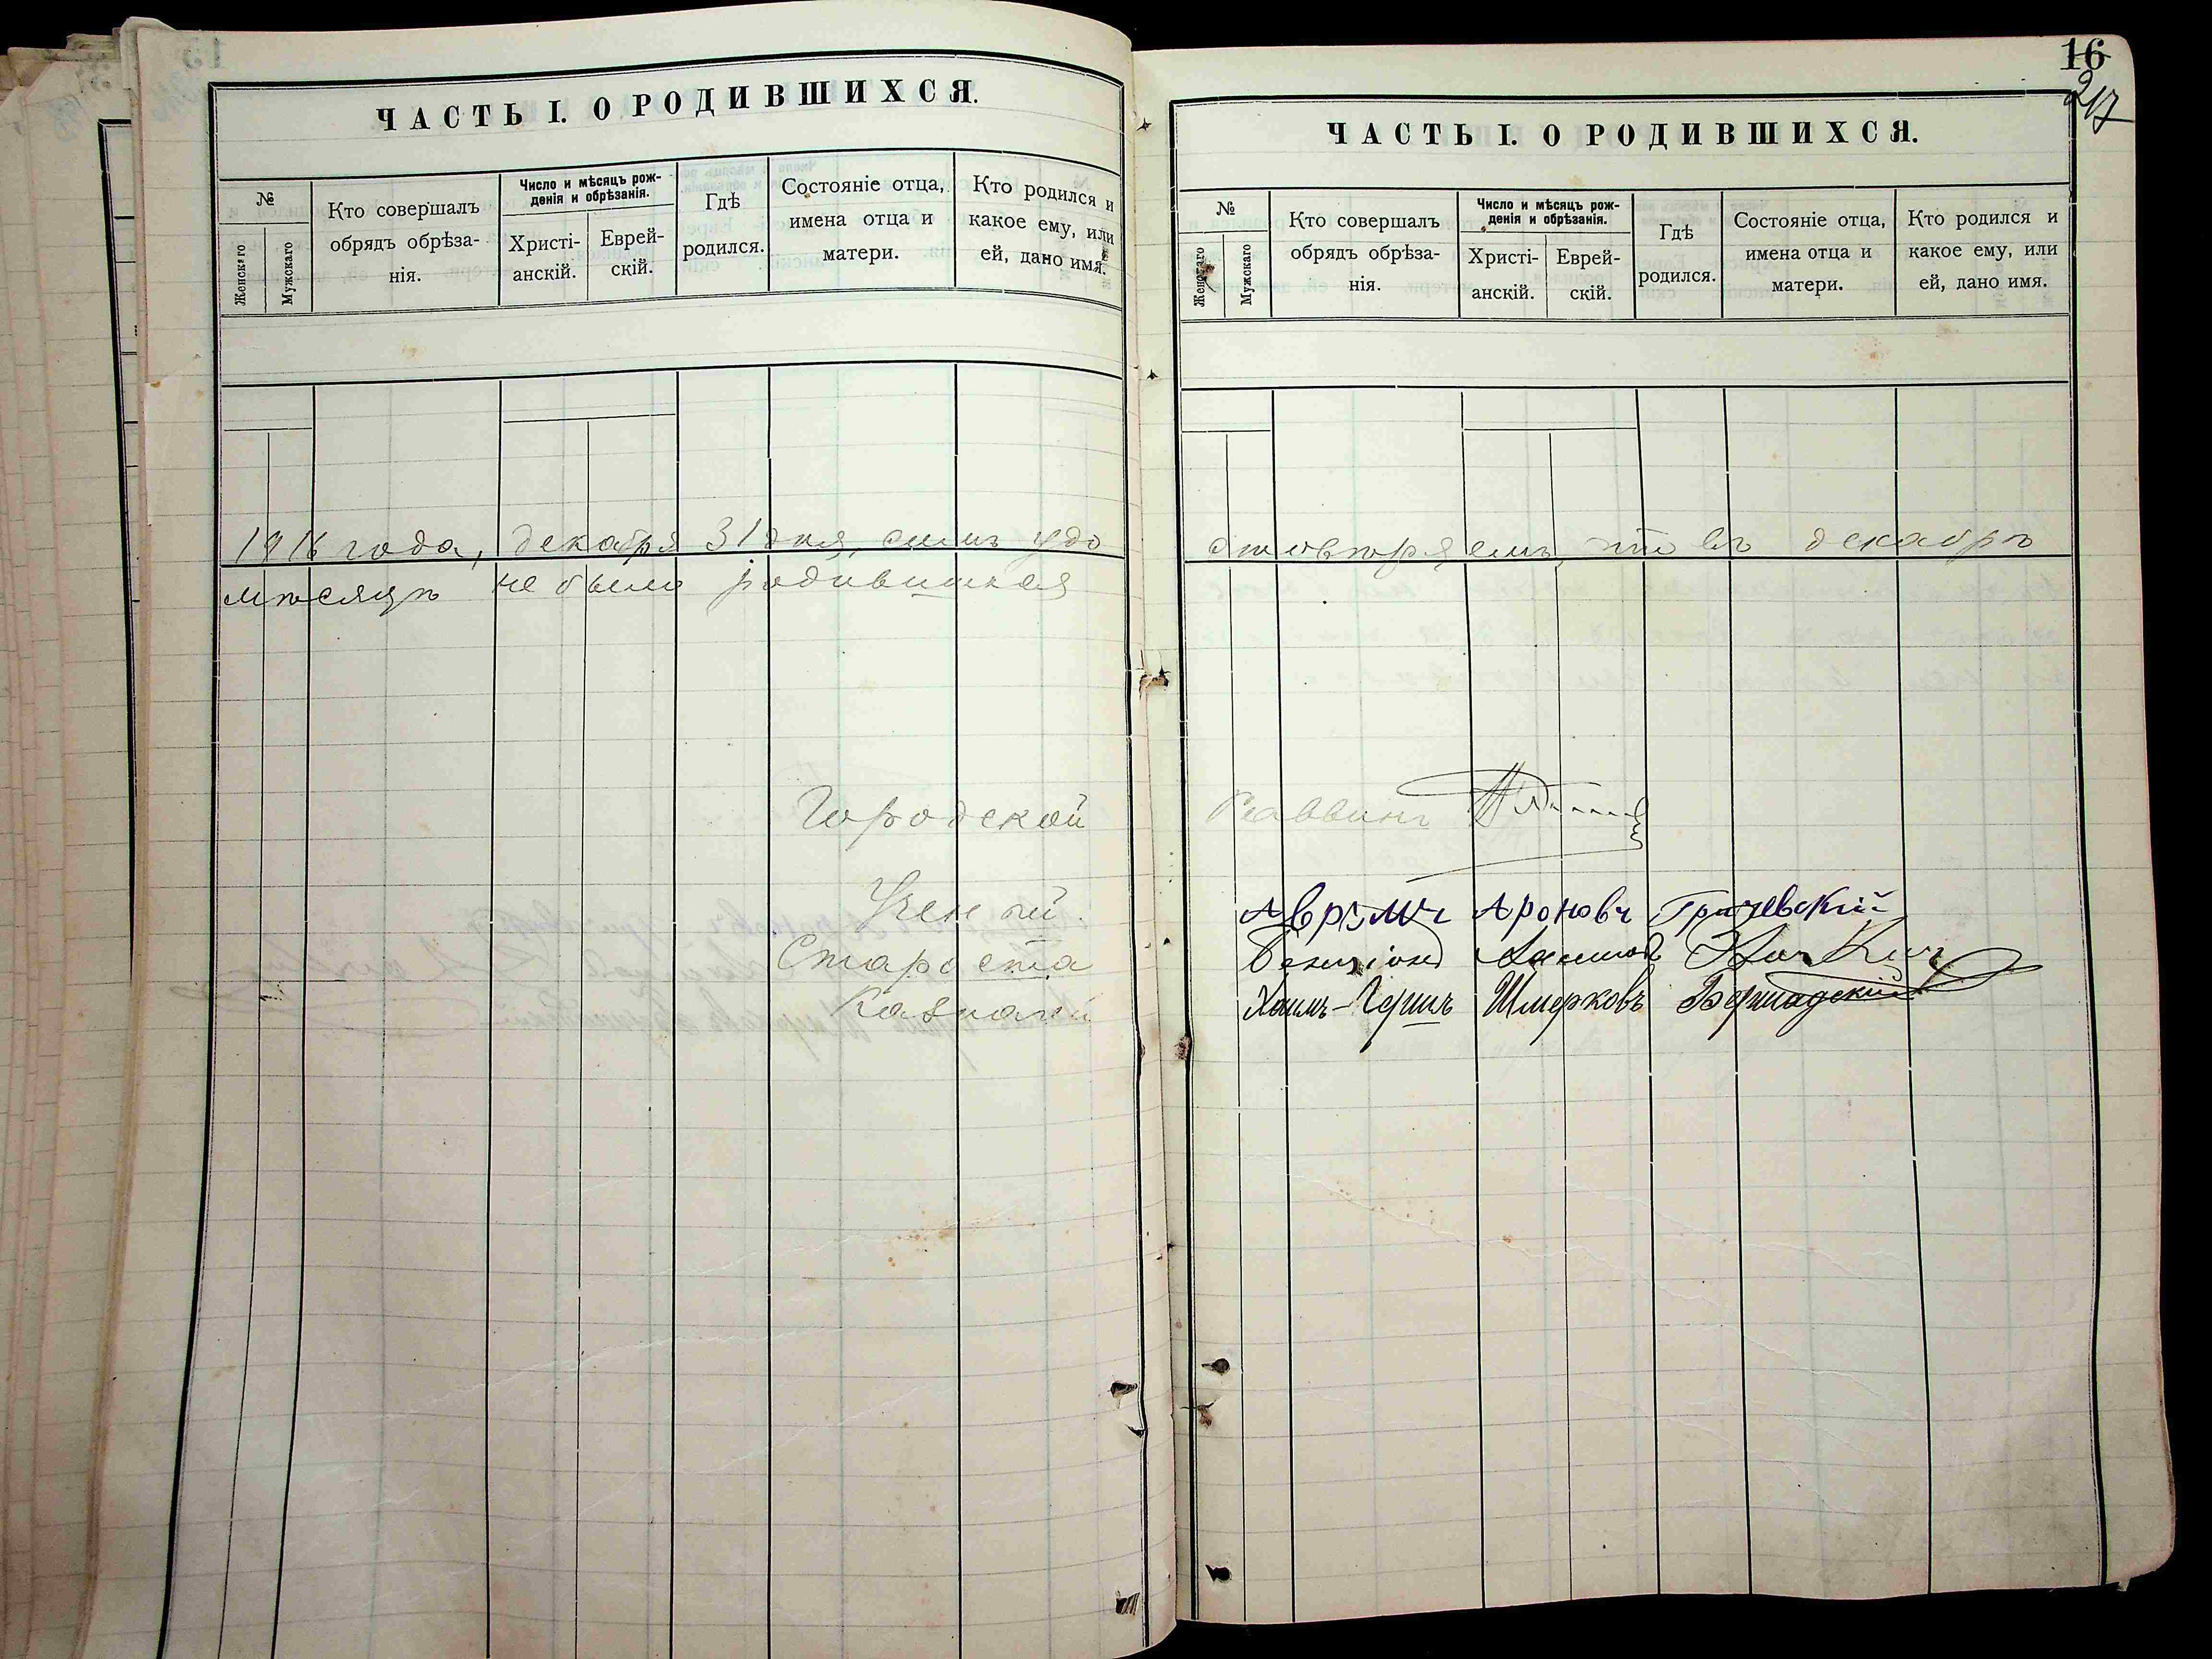 ЧАСТЬ I. О РОДИВШИХСЯ.
№
Женскаго
Мужскаго
Кто совершалъ
обрядъ обрѣза-
нія.
Число и мѣсяцъ рож-
денія и обрѣзанія.
Христі-
анскій.
Еврей-
скій.
Гдѣ
родился.
Состояніе отца,
имена отца и
матери.
Кто родился и
какое ему, или
ей, дано имя.
1916 года, декабря 31 дня, симъ удо
мѣсяцѣ не было родившихся
Городской
Ученый
Староста
Казначей
16
217
ЧАСТЬ I. О РОДИВШИХСЯ.
№
Женскаго
Мужскаго
Кто совершалъ
обрядъ обрѣза-
нія.
Число и мѣсяцъ рож-
денія и обрѣзанія.
Христі-
анскій.
Еврей-
скій.
Гдѣ
родился.
Состояніе отца,
имена отца и
матери.
Кто родился и
какое ему, или
ей, дано имя.
стовѣряемъ, что въ декабрѣ
Раввинъ
Аврумъ Ароновъ
Бенціонъ
Хаимъ-Гершъ Шмерковъ Бершадскій